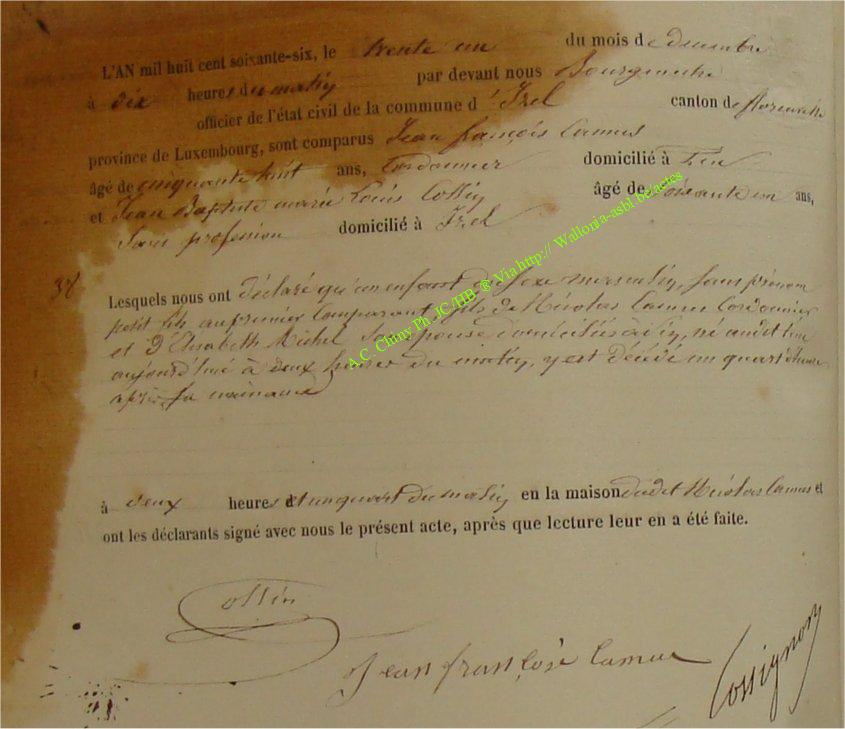 L'AN mil huit cent soixante-six, le trente un du mois de décembre
à dix heures du matin par devant nous Bourgmestre
officier de l'état civil de la commune d'Izel canton de florenville
province de Luxembourg, sont comparus Jean françois Camus
âgé de cinquante huit ans, Cordonnier domicilié à
et Jean Baptiste marie Louis Collin âgé de soixante un ans,
Sans profession domicilié à Izel
37
Lesquels nous ont déclaré qu'un enfant du sexe masculin, sans prénom
petit fils au premier Comparant, fils de Nicolas Camus Cordonnier
et d'Elisabeth Michel son épouse domiciliés à né audit lieu
aujourd'hui à deux heures du matin, y est décédé un quart d'heure
après sa naissance
à deux heures et un quart du matin en la maison dudit Nicolas Camus et
ont les déclarants signé avec nous le présent acte, après que lecture leur en a été faite.
Collin
Jean françois Camus
Cossignon
A.C. Chiny Ph JC/HB ® Via http:// Wallonia-asbl.be/actes